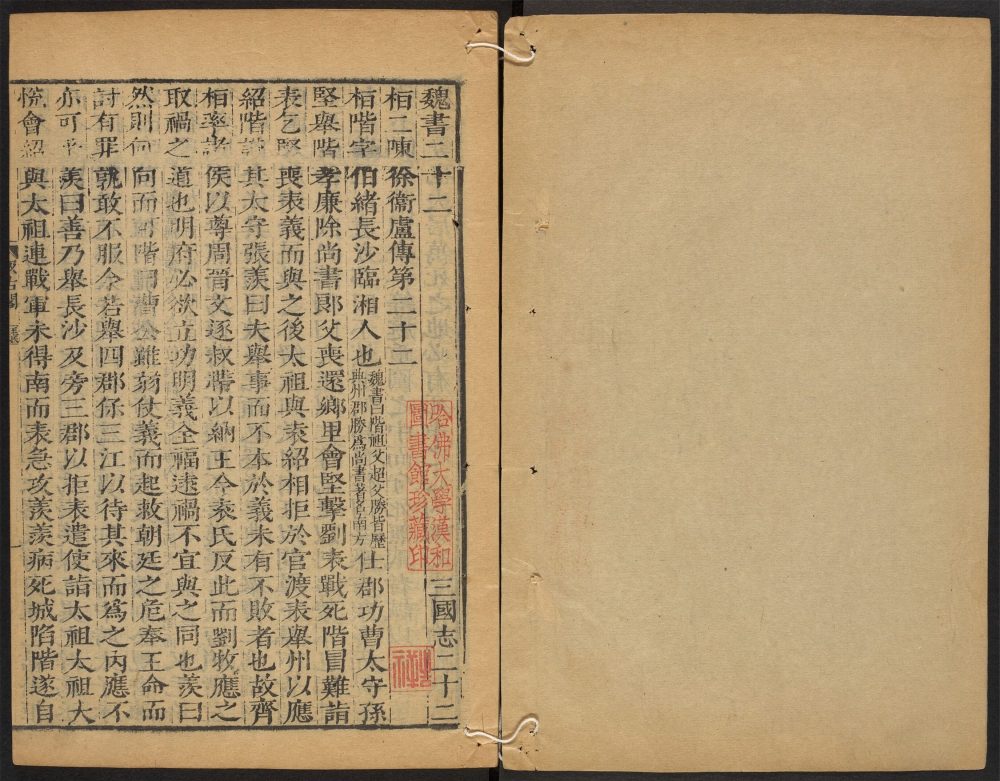 魏書二十二 三國志二十二
桓二陳徐衞盧傳第二十二
桓階字伯緒長沙臨湘人也魏書曰階祖父超父勝皆歷典州郡勝爲尚書著名南方仕郡功曹太守孫
堅舉階孝廉除尚書郎父喪還鄉里會堅擊劉表戰死階冒難詣
表乞堅喪表義而與之後太祖與袁紹相拒於官渡表舉州以應
紹階說其太守張羨曰夫舉事而不本於義未有不敗者也故齊
桓率諸侯以尊周晉文逐叔帶以納王今袁氏反此而劉牧應之
取禍之道也明府必欲立功明義全福遠禍不宜與之同也羨曰
然則何向而可階曰曹公雖弱仗義而起救朝廷之危奉王命而
討有罪孰敢不服今若舉四郡保三江以待其來而爲之內應不
亦可乎羨曰善乃舉長沙及旁三郡以拒表遣使詣太祖太祖大
悅會紹與太祖連戰軍未得南而表急攻羨羨病死城陷階遂自
哈佛大學漢和
圖書館珍藏印